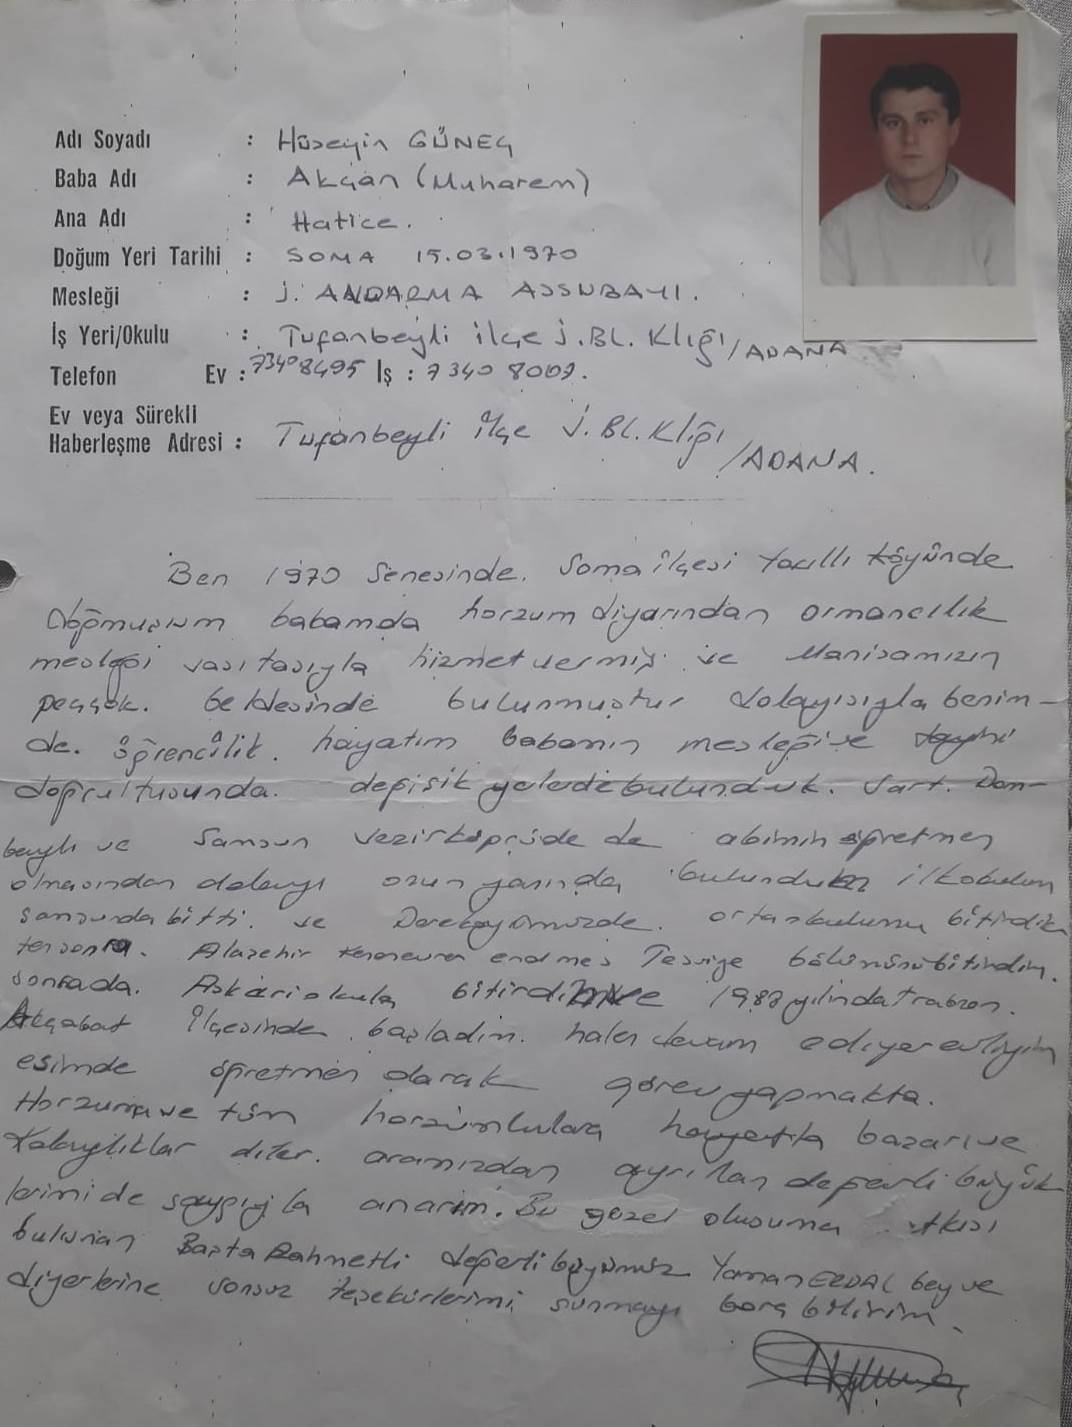 Adı Soyadı : Hüseyin GÜNEÇ
Baba Adı : Akçan (Muharem)
Ana Adı : Hatice.
Doğum Yeri Tarihi : SOMA 15.03.1970
Mesleği : J. ANDARMA ASSUBAYI.
İş Yeri/Okulu : Tufanbeyli ilçe J.BL. Klığı/ADANA
Telefon Ev : 7340 8495 İş : 7340 8009.
Ev veya Sürekli
Haberleşme Adresi : Tufanbeyli ilçe J.BL.Klığı/ADANA.
Ben 1970 Senesinde. Soma ilçesi köyünde
doğmuşum babamda horzum diyarından ormancılık
mesleği vasıtasıyla hizmet vermiş ve Manisamızın
peççok. beldesinde bulunmuştur dolayısıyla benim-
de. öğrencilik. hayatım babamın mesleği ve
doğrultusunda. değişik bulunduk. Sart. Dom-
beyli ve Samsun Vezirköprüde de abimin öğretmen
olmasından dolayı onun yanında bulundum ilkokulum
samsunda bitti. ve Dereköyümüzde. ortaokulumu bitirdik
ten sonra. Alaşehir endmes Tesviye bölümünü bitirdim.
sonrada. Askeri okula bitirdim ve yılında Trabzon.
Akçabat ilçesinde başladım. halen devam ediyor evliyim
eşimde öğretmen olarak görev yapmakta.
Horzuma ve tüm horzumlulara hayatta başarı ve
Kolaylıklar diler. aramızdan ayrılan değerli büyük
lerimide saygıyla anarım. Bu güzel olusuma etkisi
bulunan Başta Rahmetli değerli büyümüz Yaman ERDAL bey ve
diyerlerine sonsuz teşekürlerimi sunmayı borç bilirim.